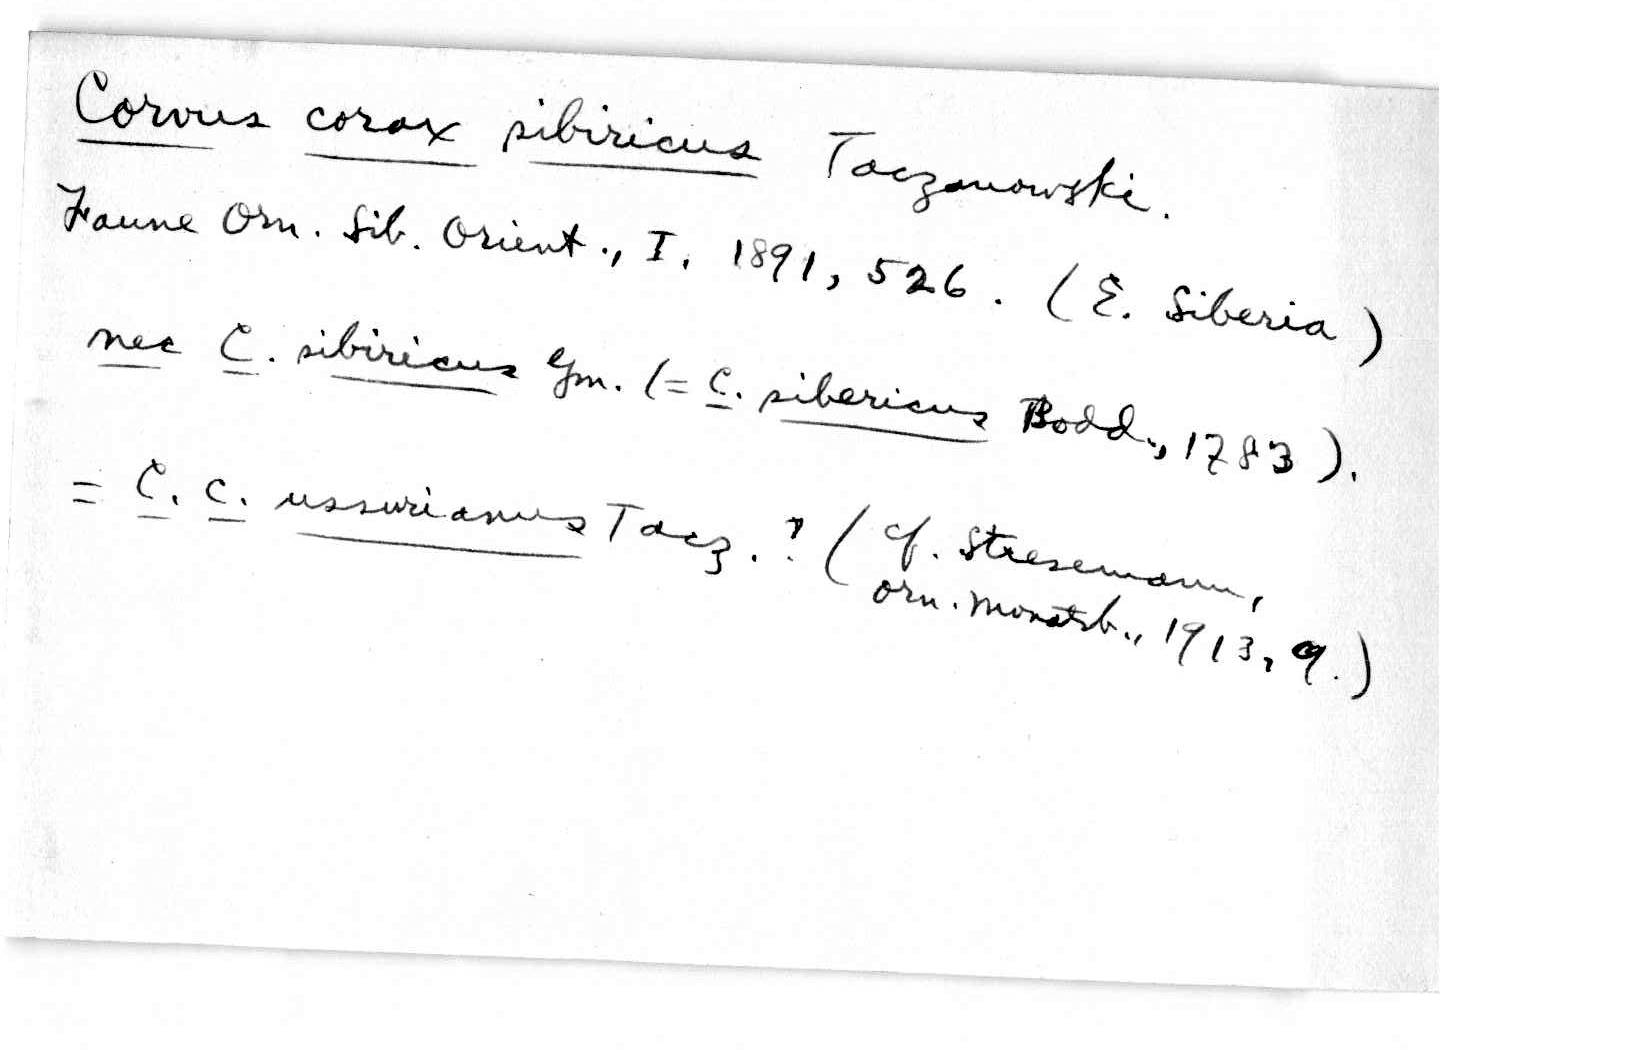 Corvus corax sibiricus Taczanowski.
Faune Orn. Sib. Orient., I, 1891, 526. (E. Siberia)
nec C. sibiricus Gm. (= C. sibericus Bodd., 1783).
= C. c. ussurianus Tacz. ? (cf. Stresemann,
Orn. Monatsb., 1913, 9.)